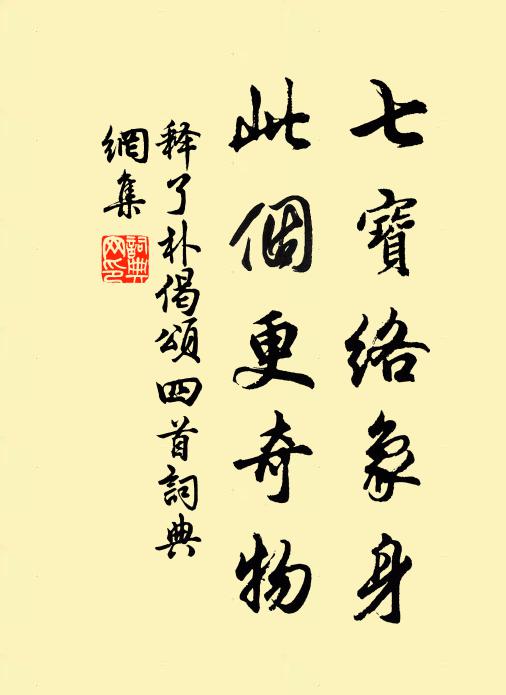 七寶络象身
此個更奇物
释了朴偈頌四首詞典
網集
詞典網印